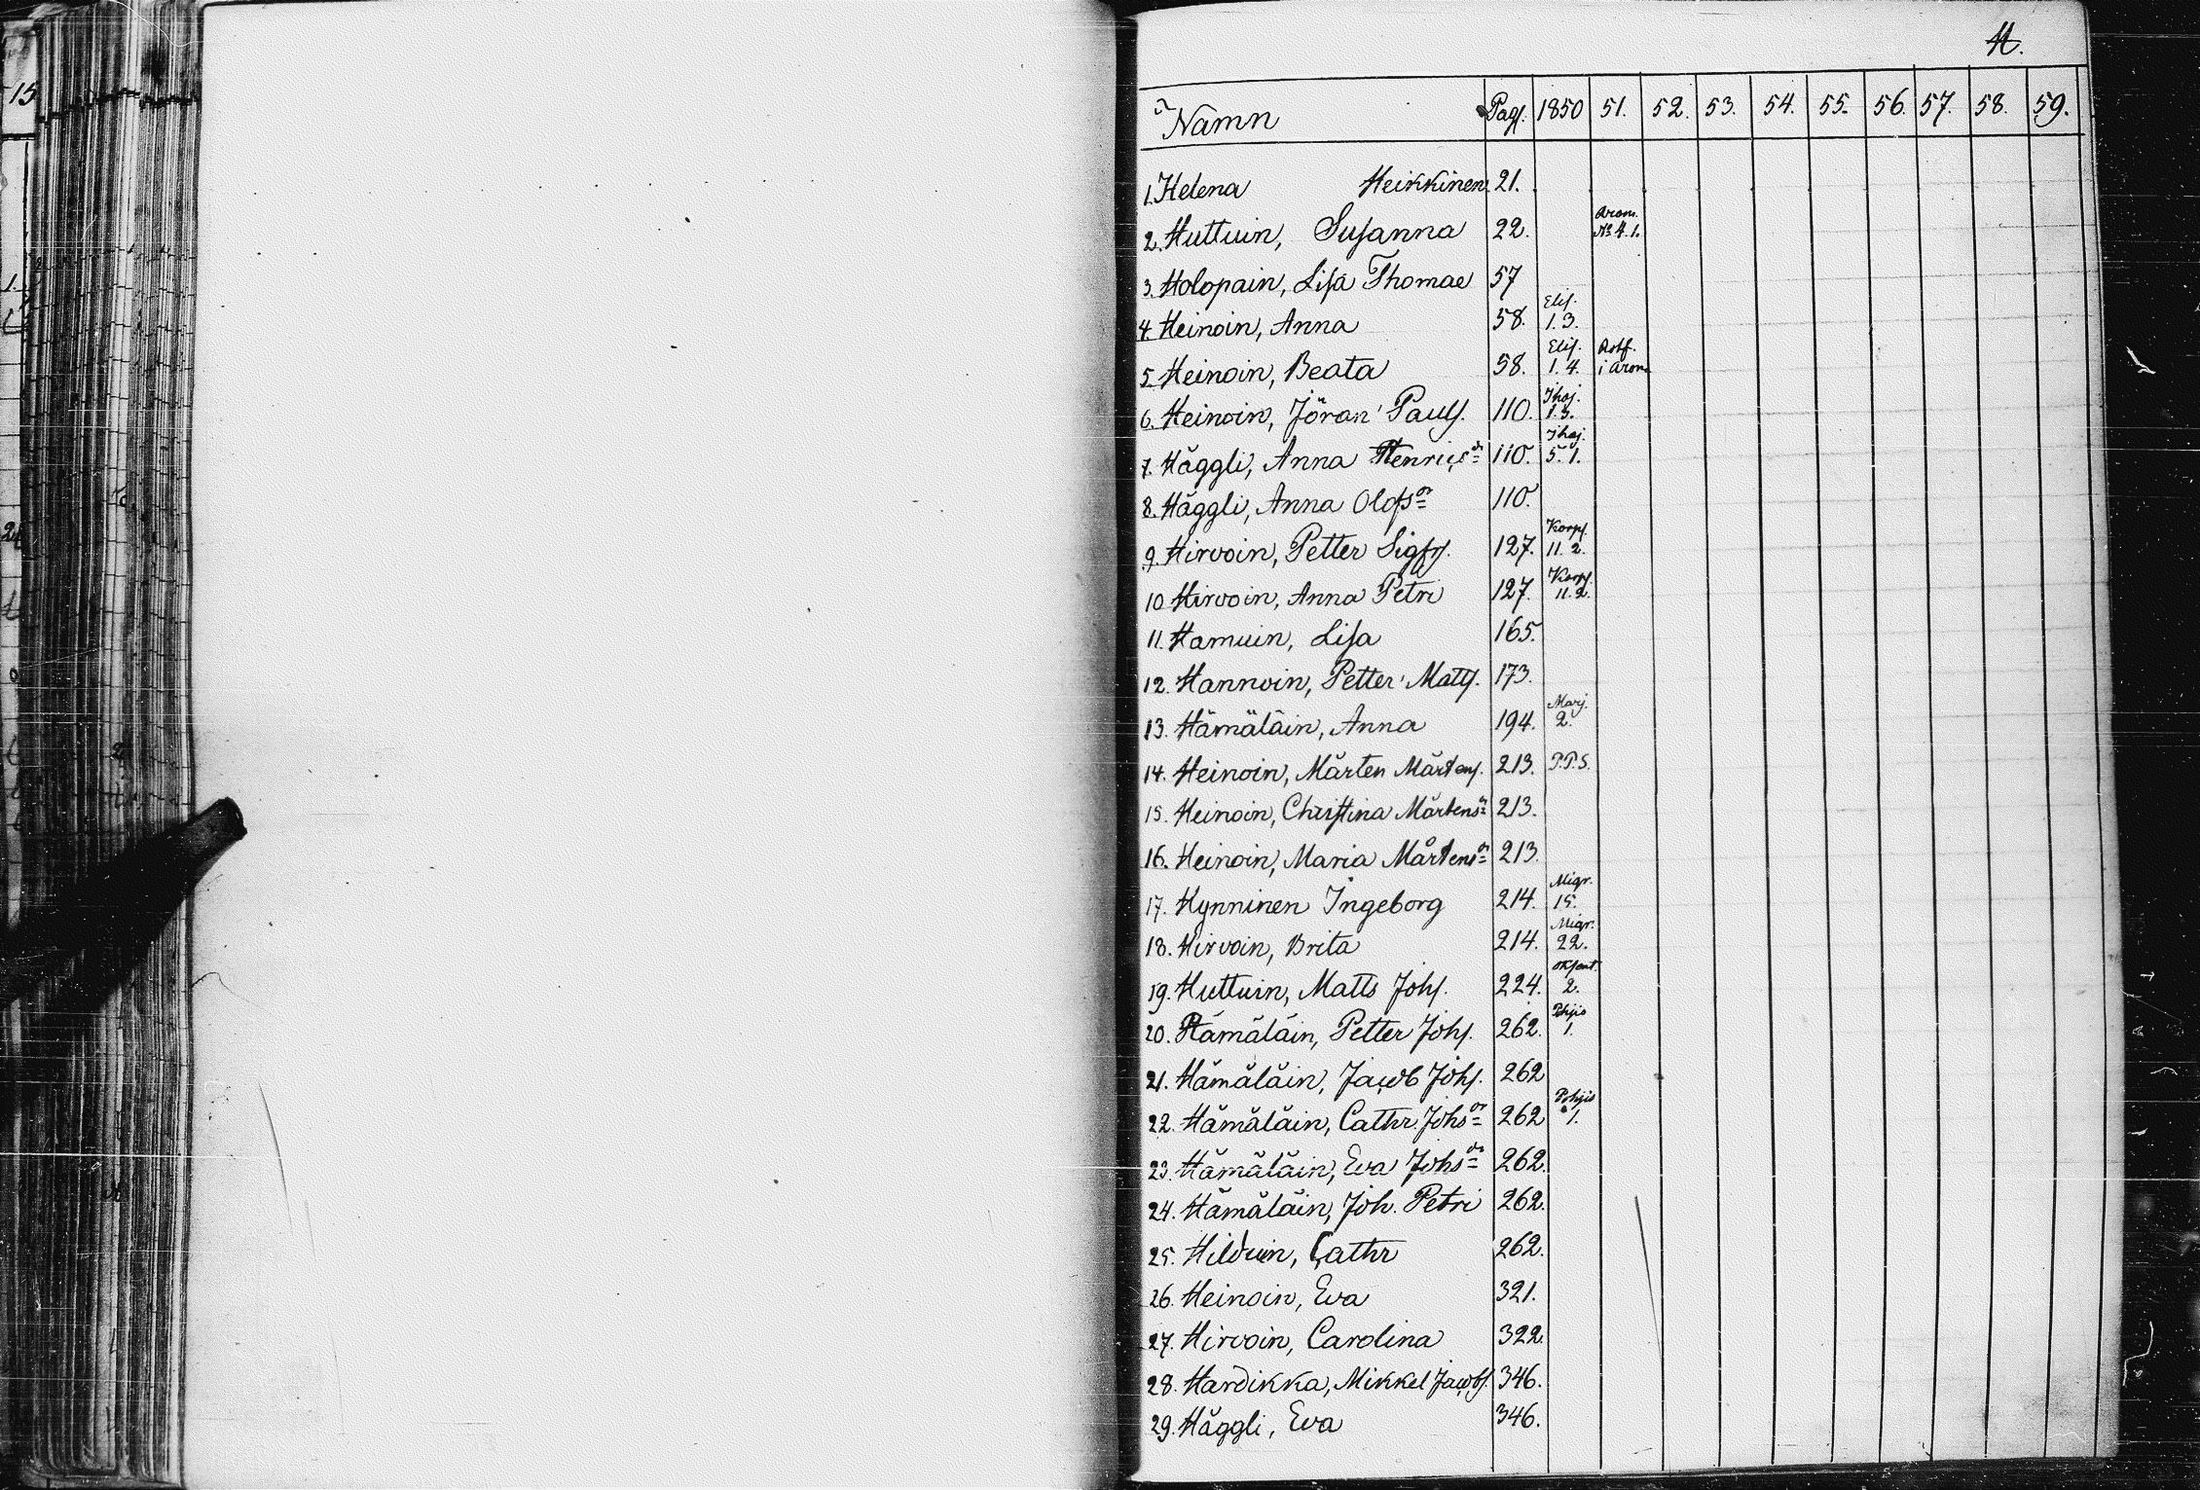 H.
Namn Pag. 1850 51. 52. 53. 54. 55. 56. 57. 58. 59.
1. Helena Heikkinen 21.
2. Huttuin, Susanna 22. Arom. No 4. 1.
3. Holopain, Lisa Thomae 57
4. Heinoin, Anna 58. Elis. 1. 3.
5. Heinoin, Beata 58. Elis. 1. 4. i Arom.
6. Heinoin, Jöran Pauls. 110. Ihaj. 1. 3.
7. Häggli, Anna Henricsdr 110. Ihaj. 5. 1.
8. Häggli, Anna Olofsdr 110.
9. Hirvoin, Petter Sigfrs. 127. Korpj. 11. 2.
10 Hirvoin, Anna Petri 127. Korpj. 11. 2.
11. Hamuin, Lisa 165.
12. Hannoin, Petter Matts. 173.
13. Hämäläin, Anna 194. Marj. 2.
14. Heinoin, Mårten Mårtens. 213. P.P.S.
15. Heinoin, Christina Mårtensdr 213.
16. Heinoin, Maria Mårtensdr 213.
17. Hynninen Ingeborg 214. Migr. 15.
18. Hirvoin, Brita 214. Migr. 22.
19. Huttuin, Matts Johs. 224. 2.
20. Hämäläin, Petter Johs. 262. Pohjis 1.
21. Hämäläin, Jacob Johs. 262
22. Hämäläin, Cathr. Johsdr 262 Pohjis 1.
23. Hämäläin, Eva Johsdr 262.
24. Hämäläin, Joh. Petri 262.
25. Hilduin, Cathr 262.
26. Heinoin, Eva 321.
27. Hirvoin, Carolina 322.
28. Hardikka, Mikkel Jacobs. 346.
29. Häggli, Eva 346.